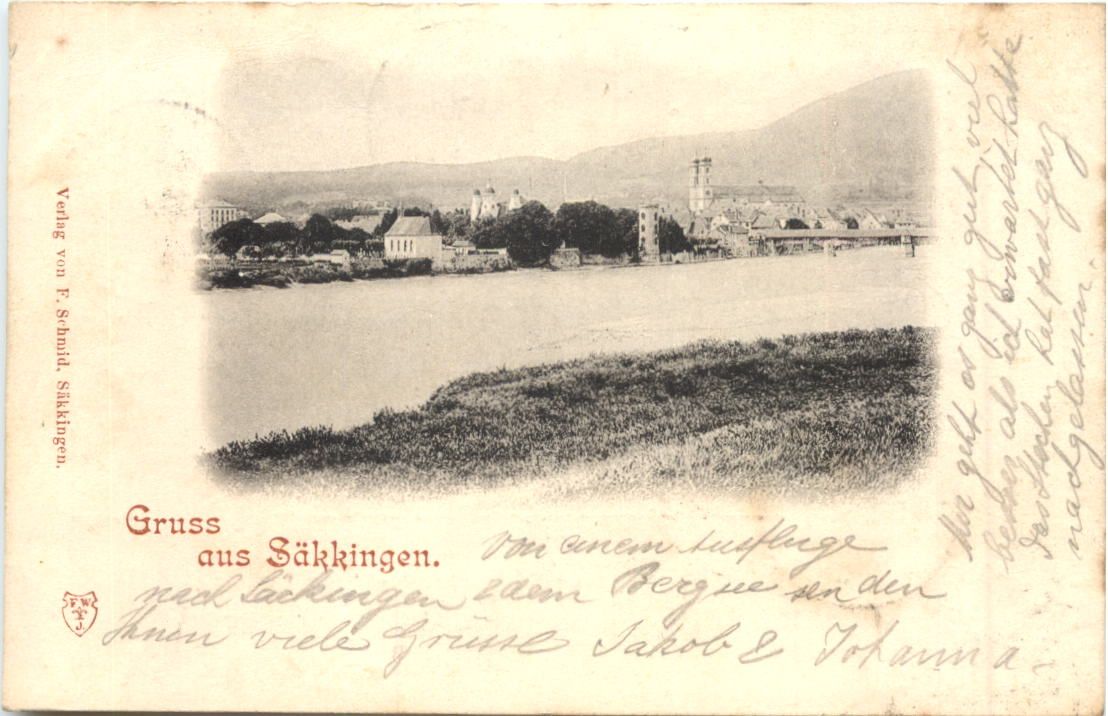 Verlag von F. Schmid, Säkkingen.
Gruss
aus Säkkingen.
F W
J.
Von einem Ausfluge
nach Säckingen & dem Bergsee senden
Ihnen viele Grüsse Jakob & Johanna.
geht es ganz gut, viel
besser als ich erwartet hatte
das Husten hat fast ganz
nachgelassen.